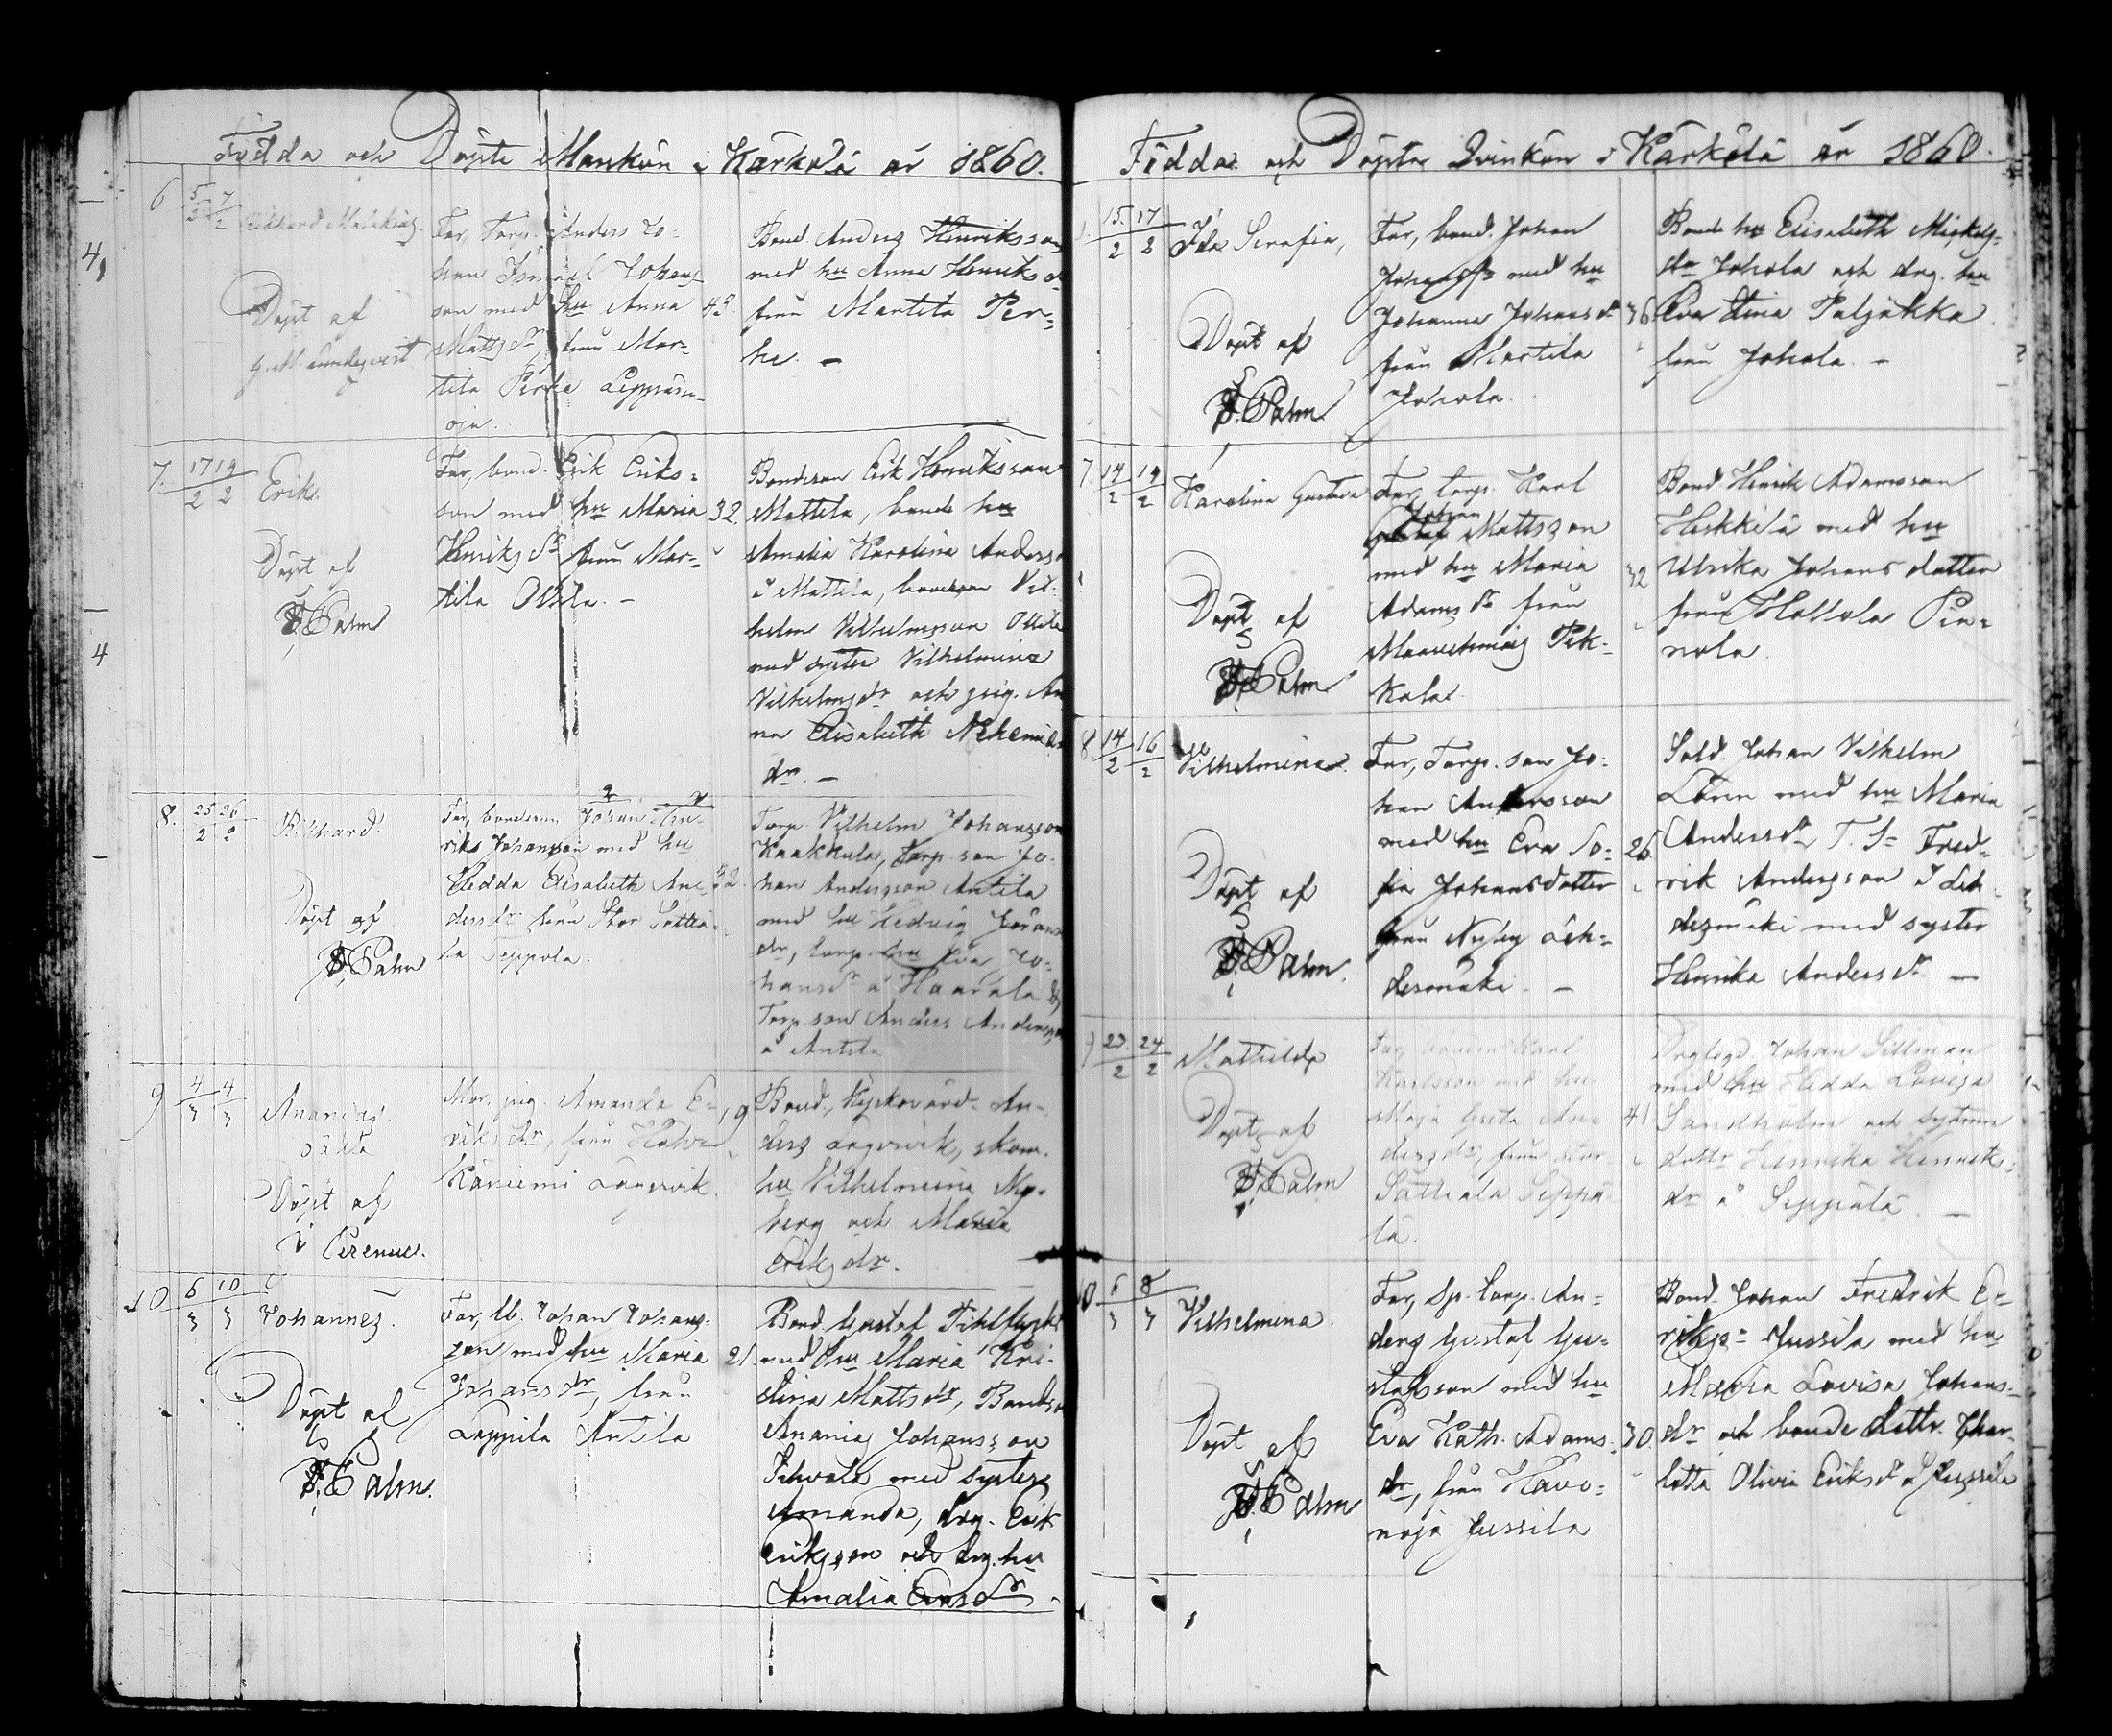 Födda och Döpte Mankön i Kärkölä år 1860.
6 5/2 7/2 Rikhard Malakias.
Döpt af
Far, Torp. Anders Jo-
han Ismael Johans-
son med hu Anna 43
Matts dr från Mar-
tila Perhe Leppäsu-
oja.
Bond. Anders Henriksson
med hu Anna Henriks dr
från Martila Per-
he. —
7. 17/2 19/2 Erik.
Döpt af
Palm
Far, bond. Erik Eriks-
son med hu Maria 32.
Henriks dr från Mar-
tila Ollila. —
Bondeson Erik Henriksson
Mattila, bonde hu
Amalia Karolina Anders
å Mattila, bondeson Vil-
helm Vilhelmsson Ollila
med syster Vilhelmina
Vilhelms dr och pig. An
na Elisabeth Nehemias
dr. —
8. 25/2 26/2 Rikhard.
Döpt af
Palm
Far, bondeson Johan Hen-
riks Johansson med hu
Hedda Elisabeth An- 32.
ders dr från Stor Sattia-
la Seppola.
Torp. Vilhelm Johansson
Kaakkula, Torp. son Jo-
han Andersson Antila
med hu Hedvig Johans
dr, torp. hu Eva Jo-
hans dr å Haarala
Torp. son Anders Andersson
å Antila
9 4/3 4/3 Ananias.
oäkta
Döpt af
Cerenius.
Mor, pig. Amanda E- 19
riks dr, från
Käniemi Lagervik.
Bond., Kyrkovärd. An-
ders Lagervik, skom.
hu Vilhelmina Ny-
berg och Maria
Eriks dr.
10 6/3 10/3 Johannes.
Döpt af
Palm.
Far, Johan Johans-
son med hu Maria 21.
Johans dr, från
Lappila Antila
Bond. Gustaf
med hu Maria Kri-
stina Matts dr, Bondeson
Ananias Johansson
med syster
Amanda, drg. Erik
Eriksson och drg. hu
Amalia
Födda och Döpta Qvinkön i Kärkölä år 1860.
15/2 17/2 Ida Serafia,
Döpt af
Palm
Far, bond. Johan
Johanss. med hu
Johanna Johans dr 36.
från Martila
Johola.
Bonde hu Elisabeth Mickels-
dr Johola och drg. hu
Eva Stina Paljakka
från Johola. —
7. 14/2 19/2 Karolina Gustava
Döpt af
Palm
Far, torp. Karl
Johan Mattsson
med hu Maria 32
Adams dr från
Maavehmais Pek-
kala.
Bond. Henrik Adamsson
Heikkilä med hu
Ulrika Johans dotter
från Hollola Pin-
nola.
8. 14/2 16/2 Vilhelmina.
Döpt af
Palm.
Far, Torp. son Jo-
han Andersson
med hu Eva So- 26.
fia Johansdotter
från Nyby Leh-
desmäki. —
Sold. Johan Vilhelm
Lönn med hu Maria
Anders dr T. S. Fred-
rik Andersson Leh-
desmäki med syster
Henrika Anders dr —
9 23/2 24/2 Mathilda
Döpt af
Palm
Far, bondens Karl
Karlsson med hu
Maja Greta An- 41
ders dr, från Stor
Sattiala Seppä-
lä.
Johan Sillman
med hu Hedda Lovisa
Sandholm och
dottr Henrika Henriks-
dr å Seppälä. —
10 6/3 8/3 Vilhelmina.
Döpt af
Palm
Far, Sp. torp. An-
ders Gustaf Gu-
stafsson med hu
Eva Kath. Adams- 30.
dr, från Havo-
noja Jussila
Bond. Johan Fredrik E-
rikss. Jussila med hu
Maria Lovisa Johans-
dr och bonde dottr. Char-
lotta Olivia Eriks dr Jussila
4,
4